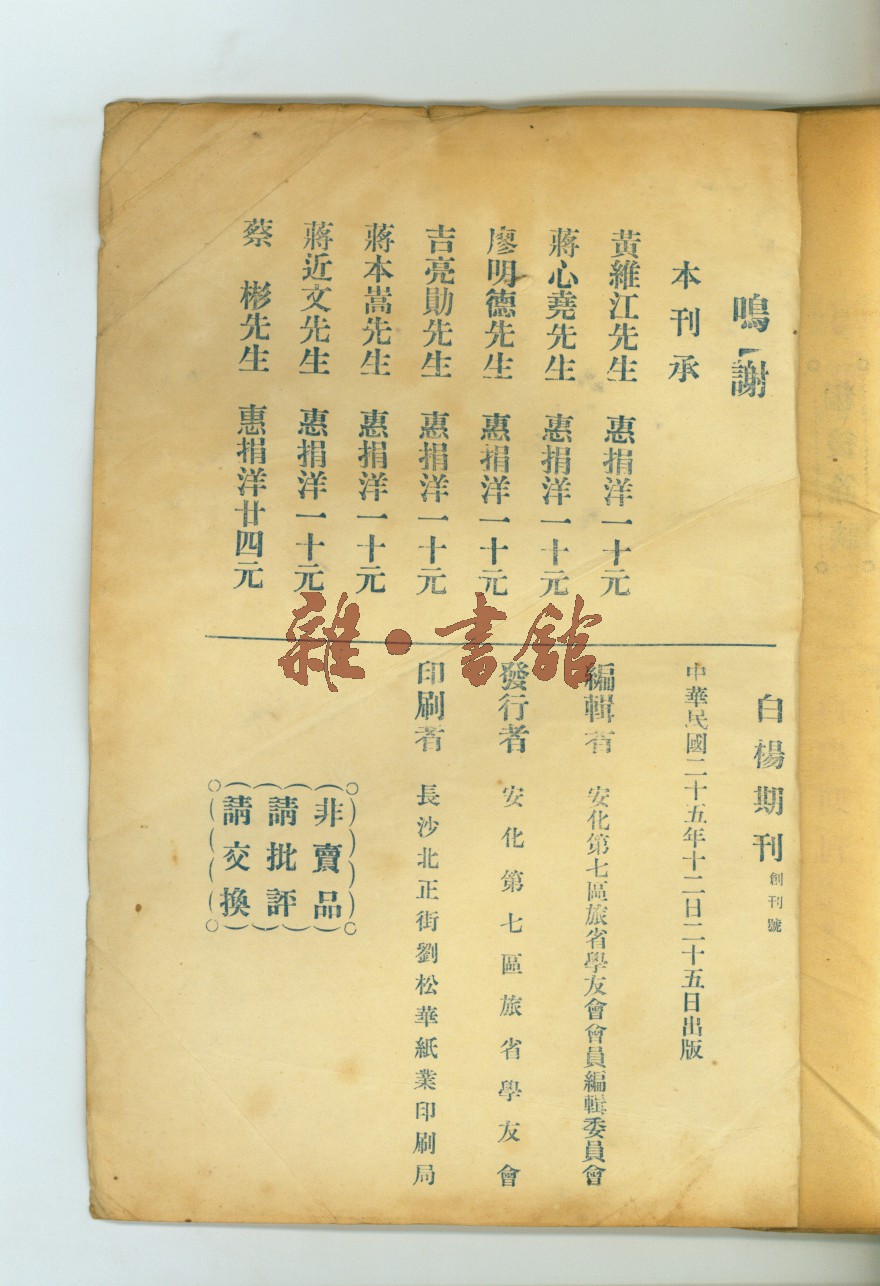 鳴謝
本刊承
黃維江先生 惠捐洋一十元
蔣心堯先生 惠捐洋一十元
廖明德先生 惠捐洋一十元
吉亮勛先生 惠捐洋一十元
蔣本嵩先生 惠捐洋一十元
蔣近文先生 惠捐洋一十元
蔡 彬先生 惠捐洋廿四元
白楊期刊 創刊號
中華民國二十五年十二日二十五日出版
編輯者 安化第七區旅省學友會會員編輯委員會
發行者 安化第七區旅省學友會
印刷者 長沙北正街劉松華紙業印刷局
非賣品
請批評
請交換
雜·書館